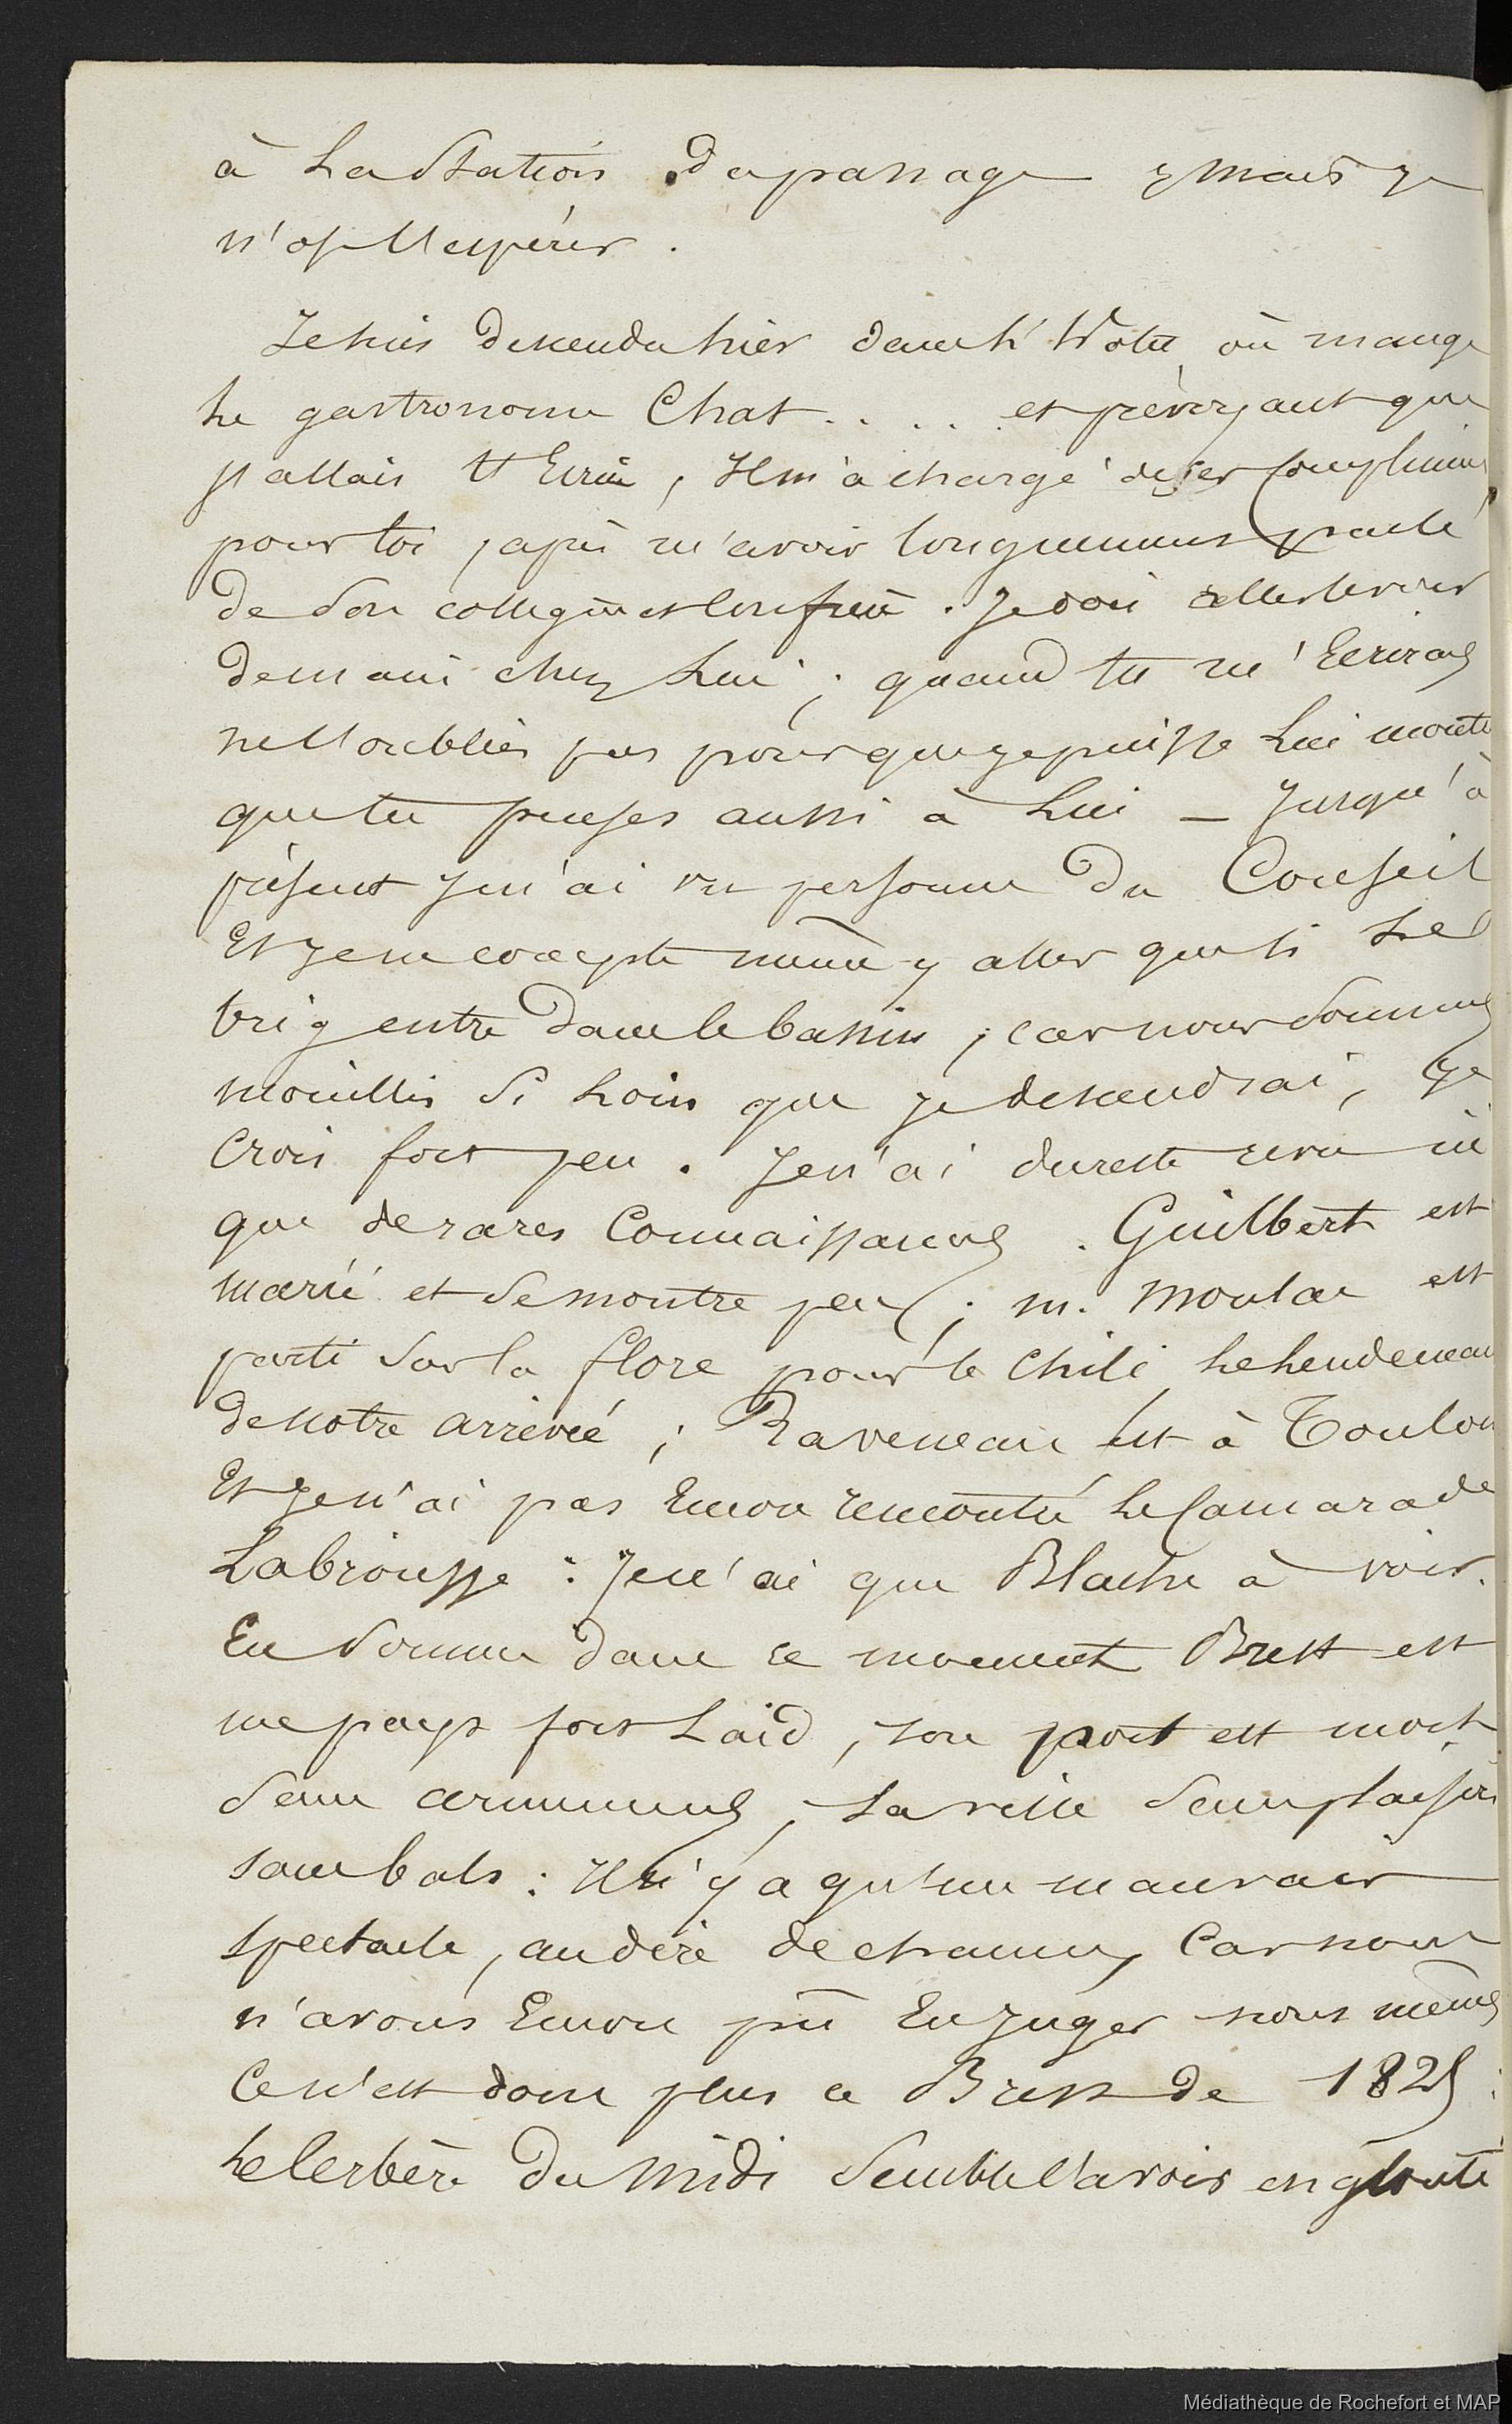 à La Station du passage ; mais je
n'ose l'espérer.
Je suis descendu hier dans l'hôtel où mange
Le gastronome Chat..... et prévoyant que
j'allais t'Ecrire, Il m'a chargé de ses Complimens
pour toi, après m'avoir longuement parlé
de Son collègue et Confrère. Je dois aller le voir
demain chez Lui ; quand tu m'Ecriras
ne l'oublies pas pour que je puisse Lui montrer
que tu penses aussi à Lui _ Jusqu'à
présent je n'ai vu personne du Conseil
Et je ne compte même y aller que si Le
brig entre dans le bassin ; car nous Sommes
mouillés Si Loin que je descendrai, Je
Crois fort peu. Je n'ai du reste revu ici
que de rares Connaissances. Guilbert est
marié et Se montre peu ; m. moulac est
parti Sur la flore pour le Chili Le Lendemain
de notre arrivée ; Raveneau Est à Toulon
Et je n'ai pas Encore rencontré Le Camarade
Labrousse : Je n'ai que Blache à voir.
En Somme dans ce moment Brest est
un pays fort Laid, son port est mort
Sans armemens, La ville Sans plaisirs
sans bals : Il n'y a qu'un mauvais
spectacle, au dire de chacun, Car nous
n'avons Encore pû En Juger nous mêmes
Ce n'est donc plus ce Brest de 1825 :
Le Cerbère du Midi Semble l'avoir englouti
Médiathèque de Rochefort et MAP